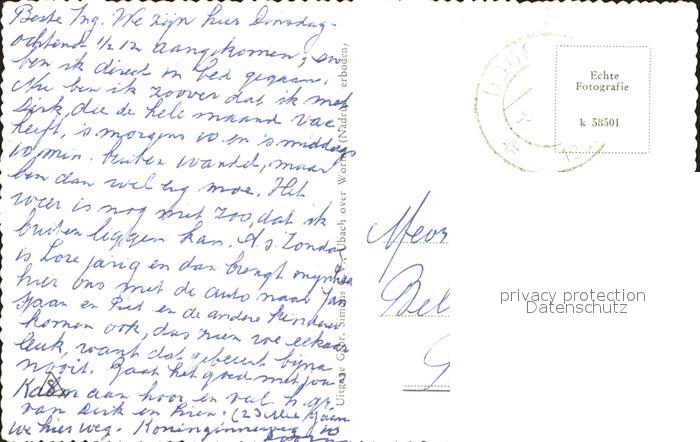 Beste Ing. We zijn hier Dinsdag-
ochtend ½ 12 aangekomen, en
ben ik direct in bed gegaan.
Nu ben ik zoover dat ik met
Dirk, die de hele maand vac.
heeft, 's morgens 10 en 's middags
10 min. buiten wandel, maar
ben dan wel erg moe. Het
weer is nog niet zoo, dat ik
buiten liggen kan. A.s. Zondag
is Lore jarig en dan brengt mijnheer
hier ons met de auto naar Jan
Jaan en Piet en de andere kinderen
komen ook, dus zien we elkaar
leuk, want dat gebeurt bijna
nooit. Gaat het goed met jou
Kdom aan hoor en veel h. gr.
van Dirk en Rien. (23 Mei gaan
we hier weg. Koninginneweg 10
Uitgave Gebr. Simons Ubach over Worms (Nadruk erboden)
Echte
Fotografie
k 58501
Mevr
Bel
G
privacy protection
Datenschutz